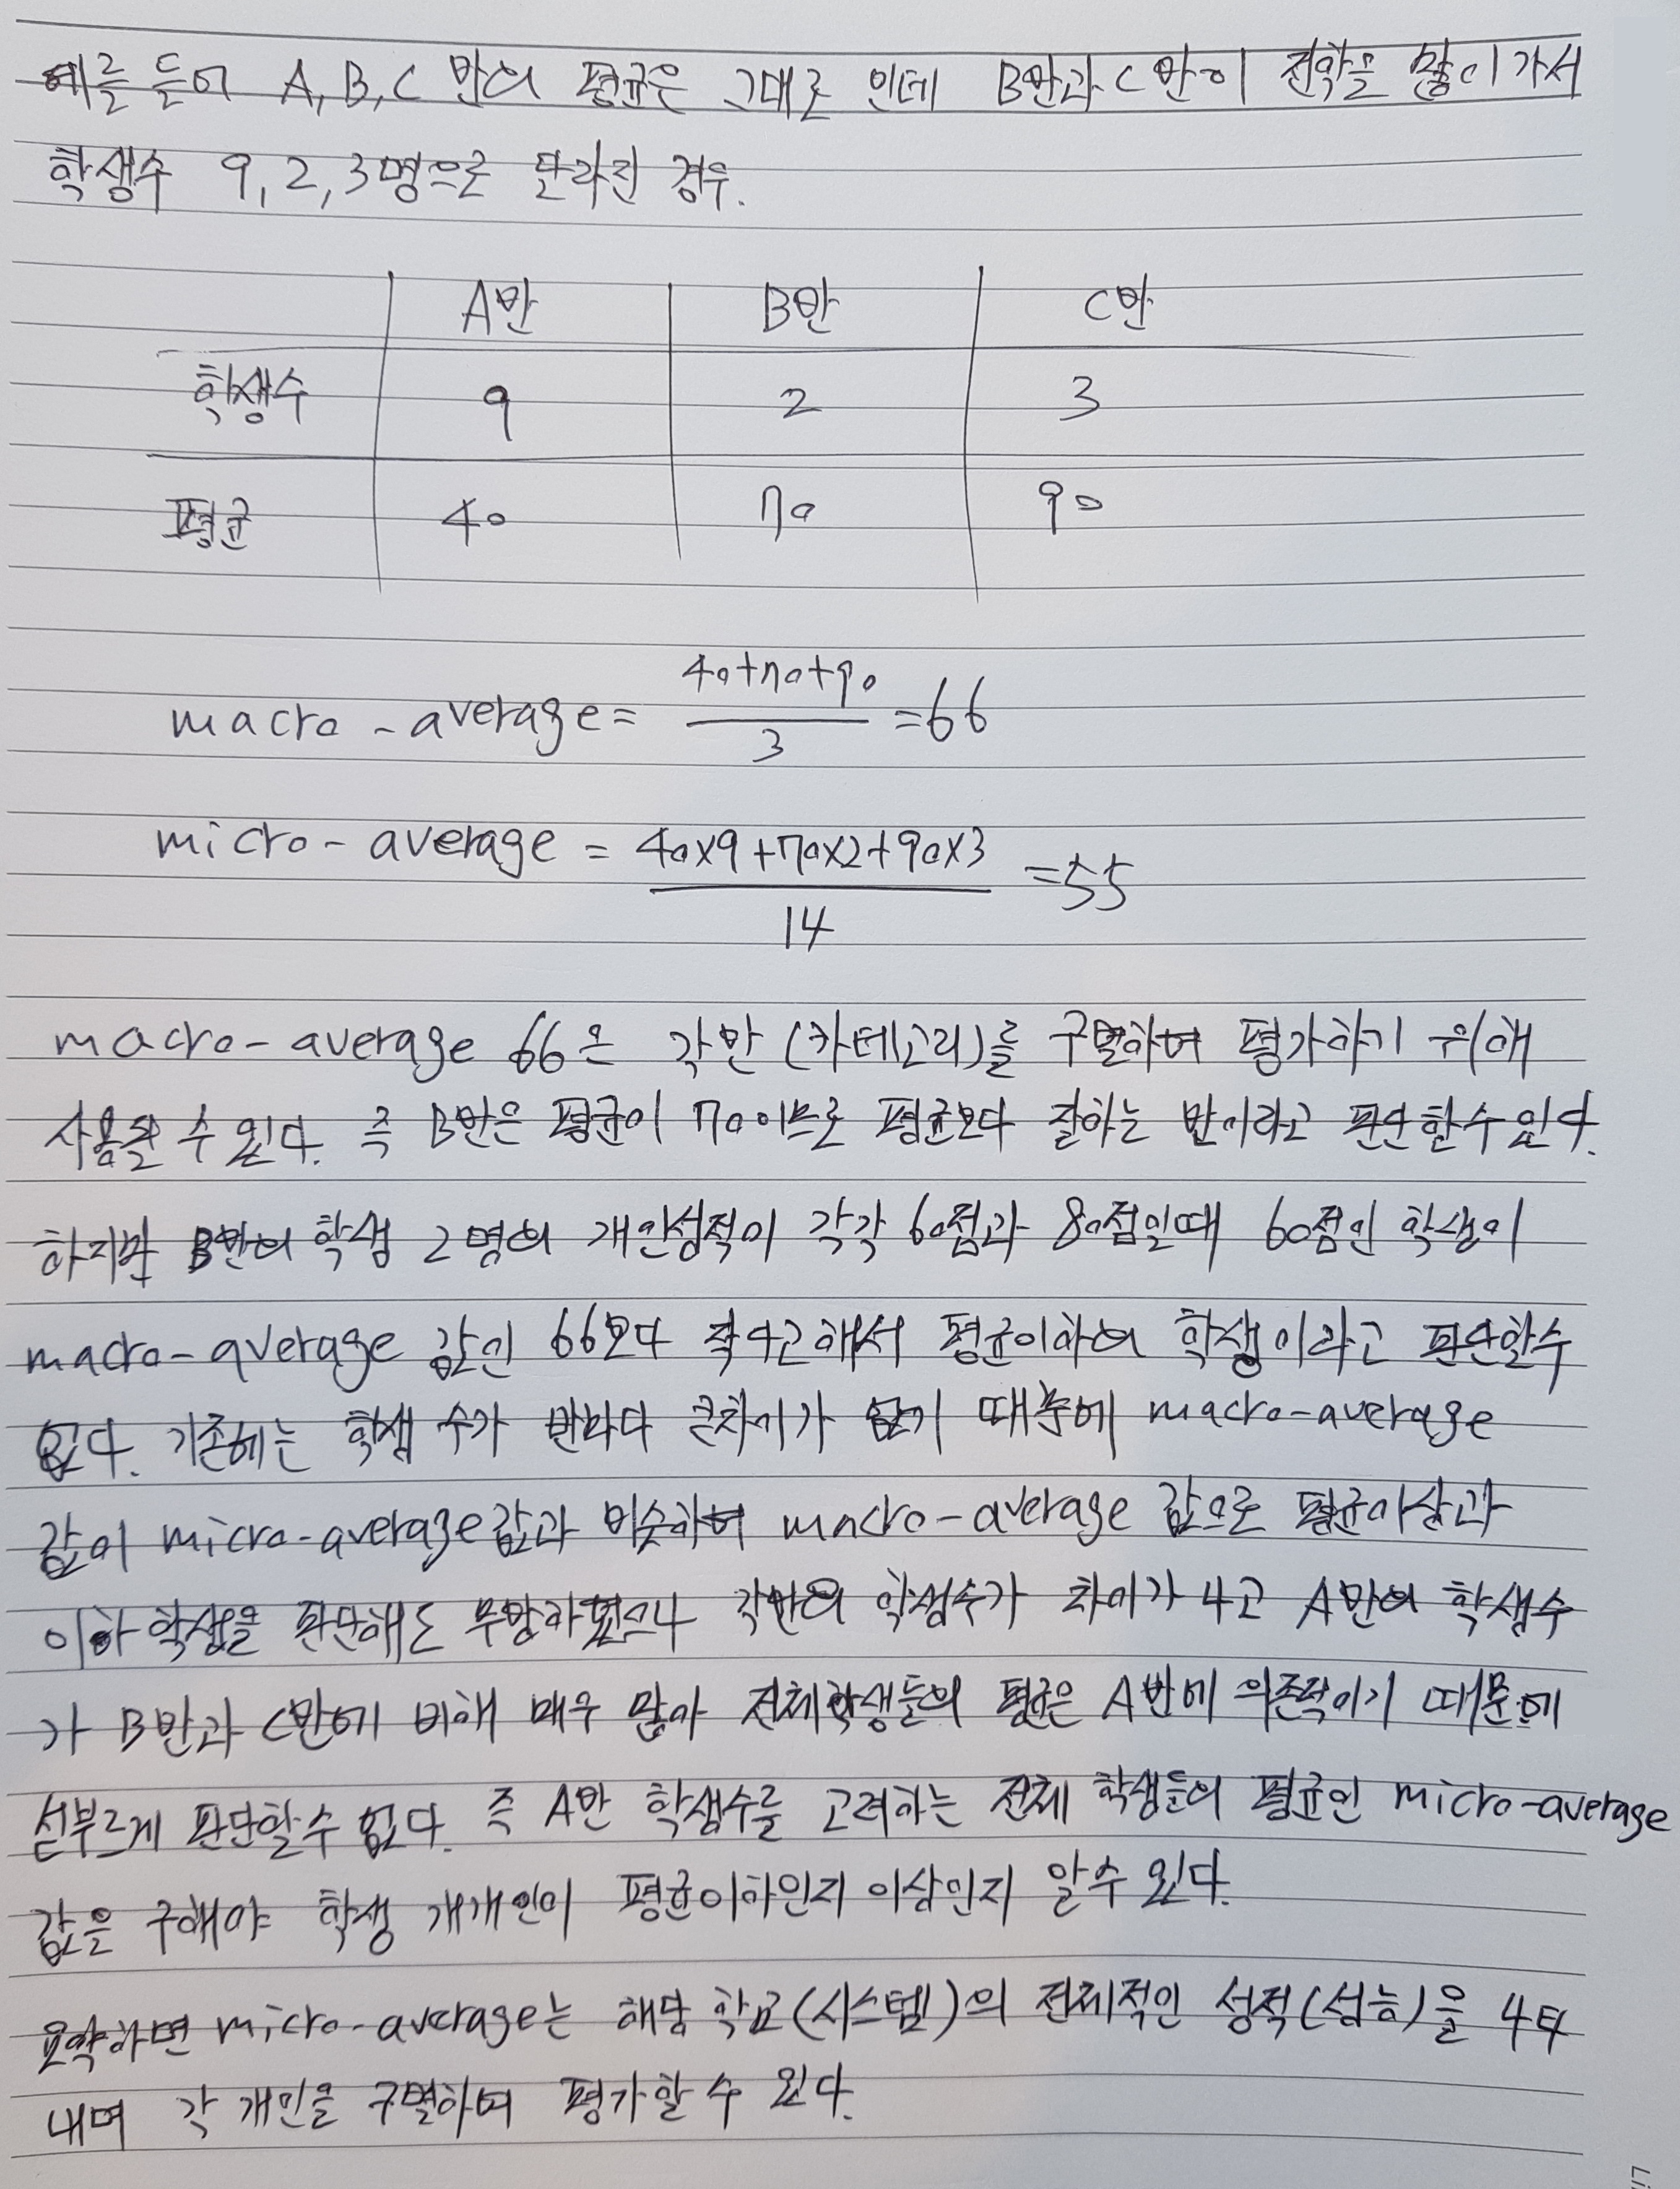 예를 들어 A, B, C 반의 평균은 그대로 인데 B반과 C반이 전학을 많이가서
학생수 9, 2, 3명으로 달라진 경우.
A반 B반 C반
학생수 9 2 3
평균 40 70 90
macro-average = (40+70+90)/3 = 66
micro-average = (40×9+70×2+90×3)/14 = 55
macro-average 66은 각반(카테고리)를 구별하여 평가하기 위해
사용될 수 있다. 즉 B반은 평균이 70이므로 평균보다 잘하는 반이라고 판단할수있다.
하지만 B반의 학생 2명의 개인성적이 각각 60점과 80점일때 60점인 학생이
macro-average 값인 66보다 작다고해서 평균이하의 학생이라고 판단할수
없다. 기존에는 학생 수가 반마다 큰차이가 없기 때문에 macro-average
값이 micro-average값과 비슷하여 macro-average 값으로 평균이상과
이하 학생을 판단해도 무방하였으나 각반의 학생수가 차이가 나고 A반의 학생수
가 B반과 C반에 비해 매우 많아 전체학생들의 평균은 A반에 의존적이기 때문에
섣부르게 판단할수 없다. 즉 A반 학생수를 고려하는 전체 학생들의 평균인 micro-average
값을 구해야 학생 개개인이 평균이하인지 이상인지 알수 있다.
요약하면 micro-average는 해당 학교(시스템)의 전체적인 성적(성능)을 나타
내며 각 개인을 구별하여 평가할 수 있다.